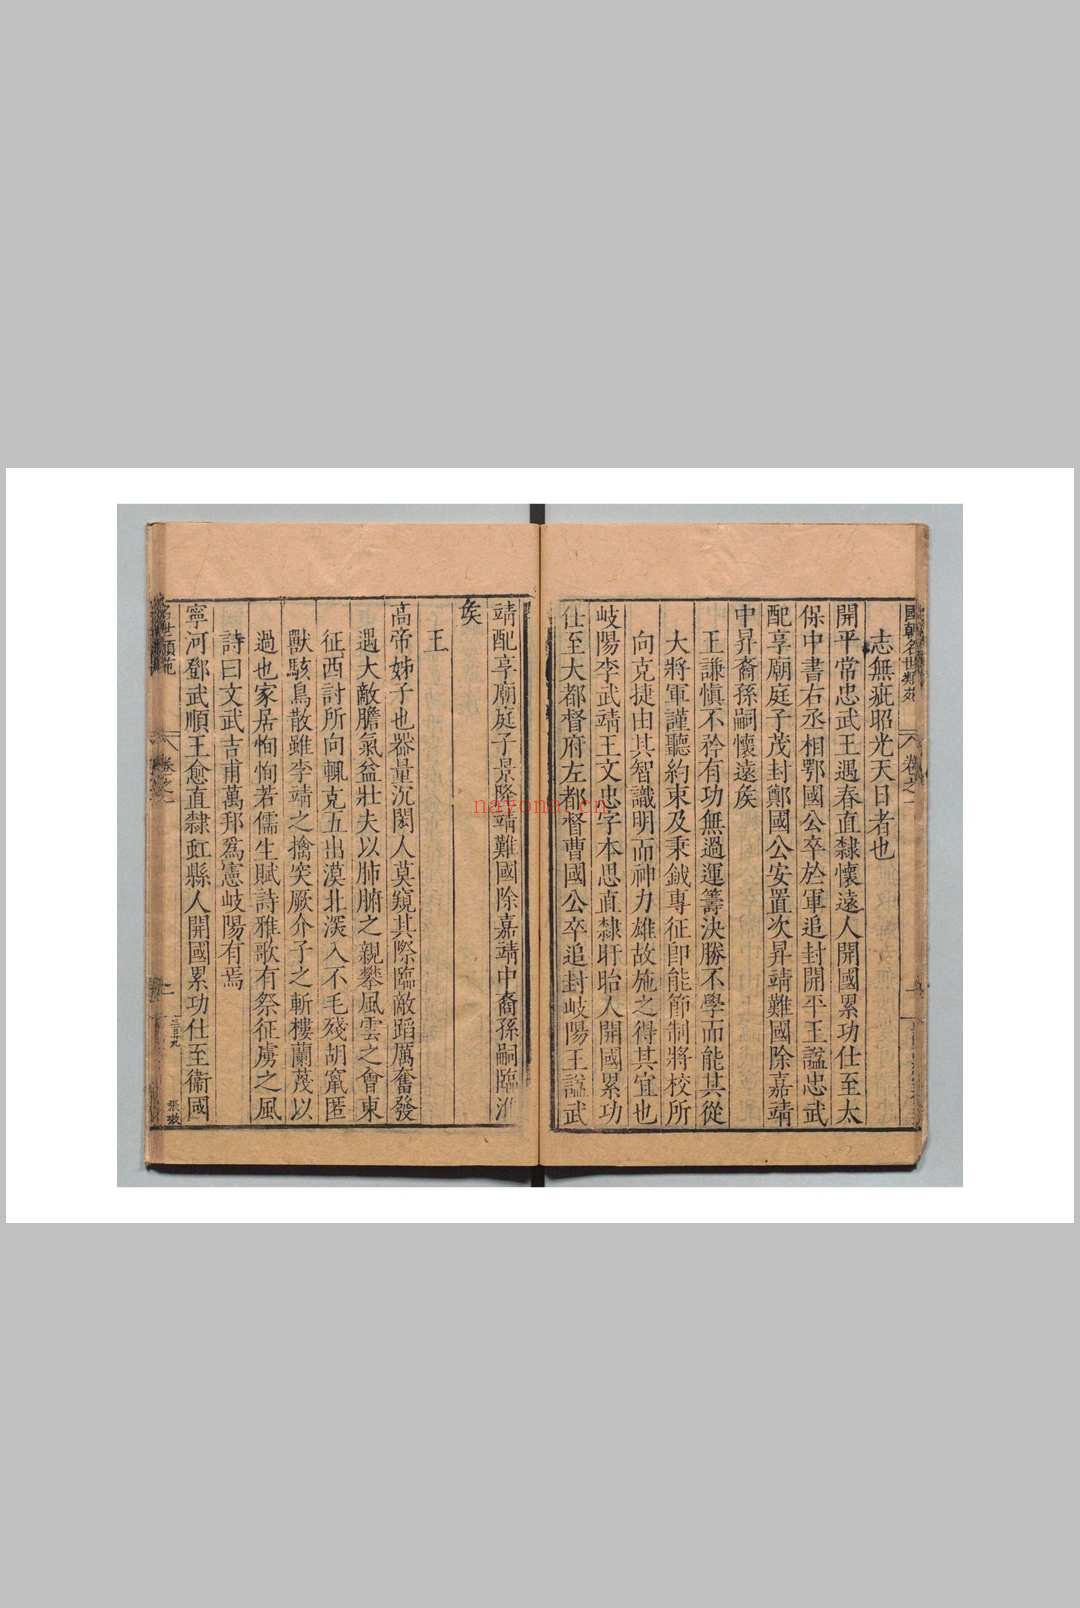 國朝名世類苑
卷之一
志無疵昭光天日者也
開平常忠武王遇春直隸懷遠人開國累功仕至太
保中書右丞相鄂國公卒於軍追封開平王諡忠武
配享廟庭子茂封鄭國公安置次昇靖難國除嘉靖
中昇裔孫嗣懷遠矦
王謙慎不矜有功無過運籌決勝不學而能其從
大將軍謹聽約束及秉鉞專征卽能節制將校所
向克捷由其智識明而神力雄故施之得其宜也
岐陽李武靖王文忠字本思直隸盱眙人開國累功
仕至大都督府左都督曹國公卒追封岐陽王諡武
靖配享廟庭子景隆靖難國除嘉靖中裔孫嗣臨淮
矦
王
高帝姊子也器量沉閎人莫窺其際臨敵蹈厲奮發
遇大敵膽氣益壯夫以肺腑之親攀風雲之會東
征西討所向輒克五出漠北深入不毛殘胡竄匿
獸駭鳥散雖李靖之擒突厥介子之斬樓蘭蔑以
過也家居恂恂若儒生賦詩雅歌有祭征虜之風
詩曰文武吉甫萬邦爲憲岐陽有焉
寧河鄧武順王愈直隸虹縣人開國累功仕至衞國
名世類苑
卷之一
二
三百九
nayona.cn